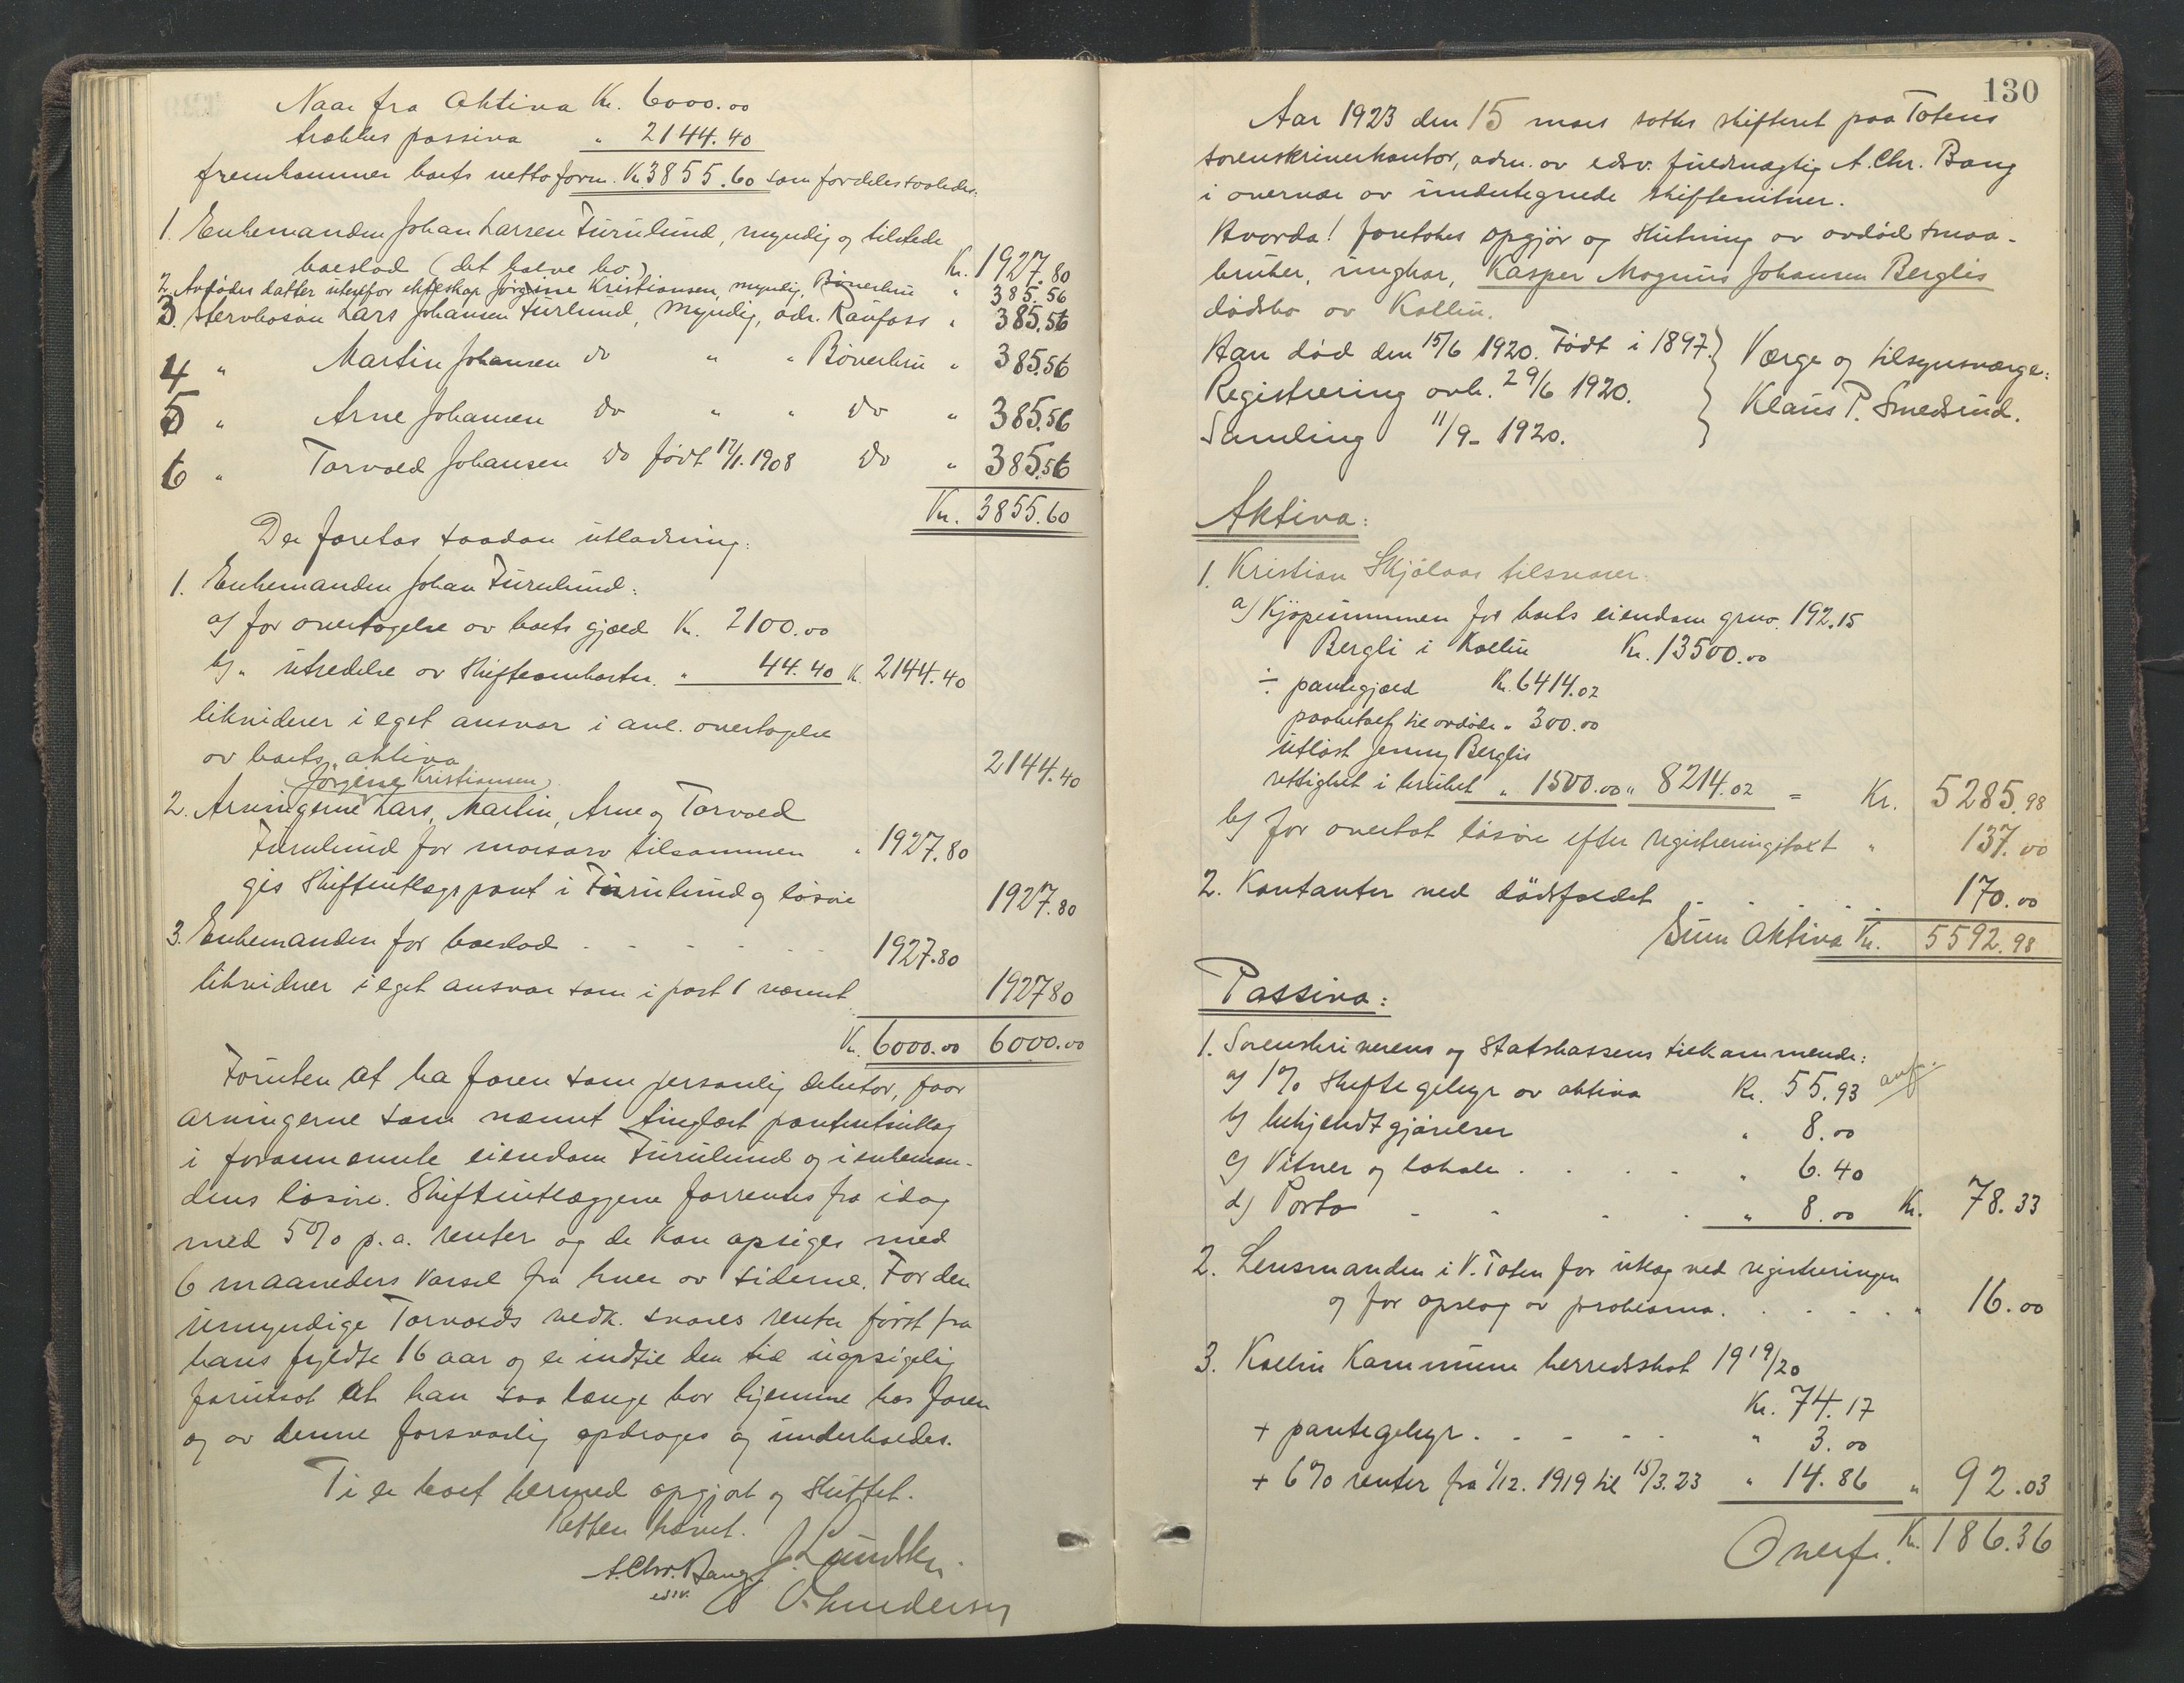 Naar fra aktiva Kr. 6000.00
trækkes passiva " 2144.40
fremkommer boets netto form. Kr. 3855.60 som fordeles saaledes:
1. Enkemanden Johan Larsen Furulund, myndig og tilstede
boeslod (det halve bo) Kr. 1927.80
2. Avdødes datter utenfor ekteskap Jørgine Kristiansen, myndig, Bøverbru " 385.56
3. Stervboson Lars Johansen Furulund, myndig, adr. Raufoss " 385.56
4 " Martin Johansen do " " Bøverbru " 385.56
5 " Arne Johansen do " " do " 385.56
6 " Torvald Johansen do født 17/1.1908 do " 385.56
Kr. 3855.60
Der foretas saadan utlodning:
1. Enkemanden Johan Furulund:
a) for overtagelse av boets gjæld Kr. 2100.00
b) " utredelse av skifteomkostn. " 44.40 Kr. 2144.40
likviderer i eget ansvar i anl. overtagelse
av boets aktiva 2144.40
Jørgine Kristiansen
2. Arvingerne Lars, Martin, Arne og Torvald
Furulund for morsarv tilsammen " 1927.80
gis skifteutlægspant i Furulund og løsøre 1927.80
3. Enkemanden for boeslod 1927.80
likviderer i eget ansvar som i post 1 nævnt 1927 80
Kr. 6000.00 6000.00
Foruten at ha faren som personlig debitor, faar
arvingerne som nævnt tinglæst panteutlæg
i forannævnte eiendom Furulund og i enkeman-
dens løsøre. Skifteutlæggene forrentes fra idag
med 5% p.a. renter og de kan opsiges med
6 maaneders varsel fra hver av siderne. For den
umyndige Torvalds vedk. svares renter først fra
hans fyldte 16 aar og er indtil den tid uopsigelig
forutsat at han saa længe bor hjemme hos faren
og av denne forsvarlig opdrages og underholdes.
Ti er boet hermed opgjort og sluttet.
Retten hævet.
A. Chr. Bang J. Lundsten
edsv. O. Lundersen
130
Aar 1923 den 15 mars sattes skifteret paa Totens
sorenskriverkontor, adm. av edsv. fuldmægtig A. Chr. Bang
i overvær av undertegnede skiftevitner.
Hvorda! foretokes opgjør og slutning av avdød smaa-
bruker, ungkar, Kasper Magnus Johansen Berglis
dødsbo av Kolbu.
Han død den 15/6 1920. Født i 1897. Værge og tilsynsværge:
Registrering avh. 29/6 1920. Klaus P. Smedsrud.
Samling 11/9- 1920.
Aktiva:
1. Kristian Skjølaas tilsvarer:
a) Kjøpesummen for boets eiendom grno. 192.15
Bergli i Kolbu Kr. 13500.00
÷ pantegjæld Kr. 6414.02
paabetalt til avdøde " 300.00
utløst Jenny Berglis
rettighet i bruket " 1500.00 " 8214.02 = Kr. 5285.98
b) for overtat løsøre efter registreringstakst " 137.00
2. Kontanter ved dødsfaldet 170.00
Sum Aktiva Kr. 5592.98
Passiva:
1. Sorenskriverens og Statskassens tilkommende:
a) 1% skiftegebyr av aktiva Kr. 55.93
b) bekjendtgjørelser " 8.00
c) Vitner og lokale " 6.40
d) Porto " 8.00 Kr. 78.33
2. Lensmanden i V. Toten for utlæg ved registreringen
og for opslag av proklama " 16.00
3. Kolbu Kommune herredsskat 1919/20
Kr. 74.17
+ pantegebyr " 3.00
+ 6% renter fra 1/12. 1919 til 15/3.23 " 14.86 " 92.03
Overf. Kr. 186.36